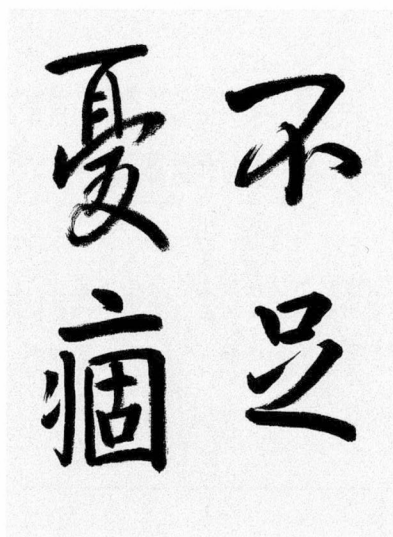 不足
憂痼